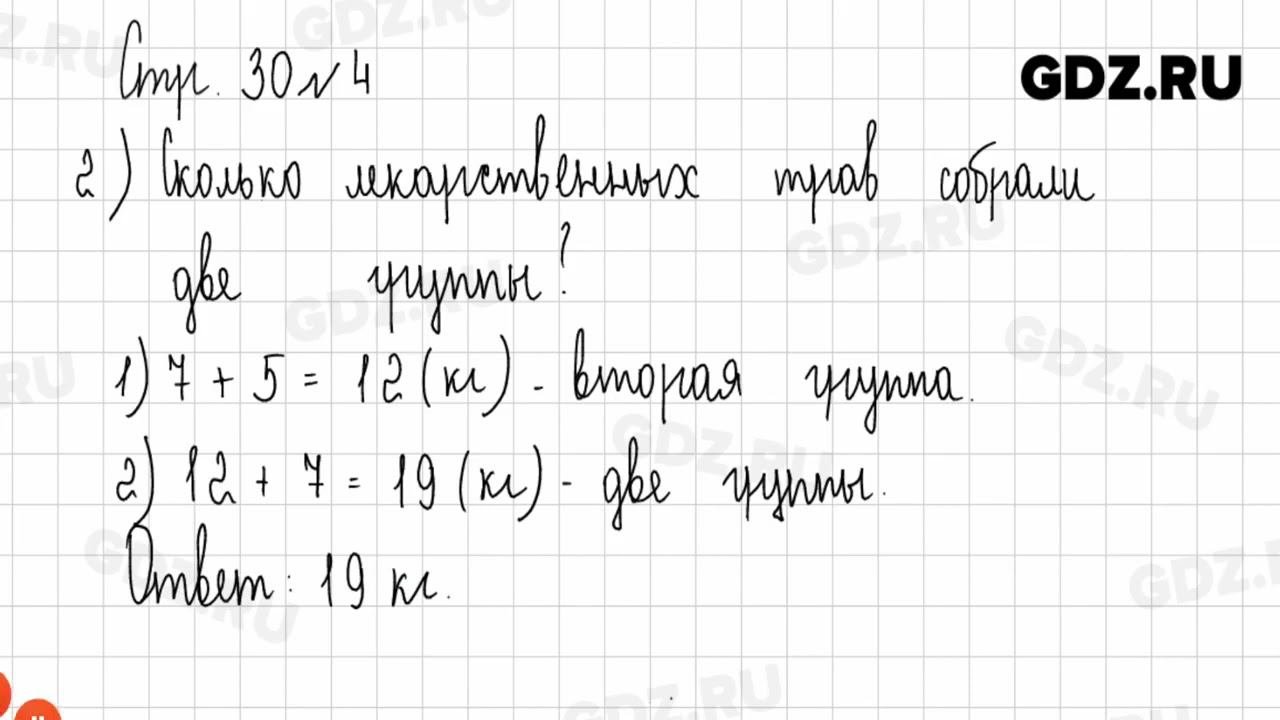 GDZ.RU
Стр. 30 № 4
2) Сколько лекарственных трав собрали
две группы?
1) 7 + 5 = 12 (кг) - вторая группа.
2) 12 + 7 = 19 (кг) - две группы.
Ответ: 19 кг.